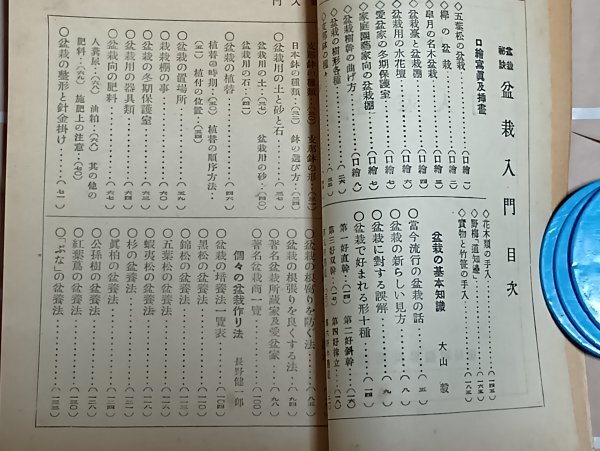 盆栽秘訣 盆栽入門目次
口繪寫眞及挿畫
◇五葉松の盆栽………(口繪 一)
◇欅の盆栽………(口繪 二)
◇皐月の名木盆栽………(口繪 三)
◇盆栽臺と盆栽棚………(口繪 四)
◇盆栽用の水花壇………(口繪 五)
◇愛盆家の冬期保護室………(口繪 六)
◇家庭園藝家向の盆栽棚………(口繪 七)
◇盆栽樹幹の曲げ方………(口繪 八)
◇盆栽の樹形各種………
◇花木類の手入………
◇野梅「道知邊」………(一六五)
◇實物と竹筐の手入………(一八三)
盆栽の基本知識 大山毅
〇當今流行の盆栽の話………(三)
〇盆栽の新らしい見方………(五)
〇盆栽に對する誤解………(九)
〇盆栽で好まれる形十種………(一四)
第一好直幹…(一四) 第二好斜幹…
第三好双幹… 第四好株立…
支那鉢の種類… 支那鉢の形…
日本鉢の種類… 鉢の選び方…
〇盆栽用の土と砂と石………(三七)
盆栽用の土…(三七) 盆栽用の砂…(四〇)
盆栽用の石…(四二)
〇盆栽の植替………(四六)
植替の時期…(五〇) 植替の順序方法…
(五一) 植付の位置…(五四)
〇盆栽の置場所………(五九)
〇栽栽棚の事………(六一)
〇盆栽の冬期保護室………(六三)
〇盆栽用の器具類………(六四)
〇盆栽向の肥料………(六七)
人糞尿…(六八) 油粕…(六八) 其の他の
肥料…(六九) 施肥上の注意…(七〇)
〇盆栽の整形と針金掛け………(七一)
〇盆栽の根張りを良くする法………(九四)
〇著名盆栽所藏家及愛盆家………(九八)
〇著名盆栽商一覽………(一〇〇)
個々の盆栽作り法 長野健一郎
〇盆栽の培養法一覽表………(一〇四)
〇黒松の盆養法………
〇錦松の盆養法………
〇五葉松の盆養法………
〇蝦夷松の盆養法………(一一八)
〇杉の盆養法………
〇眞柏の盆養法………
〇公孫樹の盆養法………(一二八)
〇紅葉蔦の盆養法………
〇「ぶな」の盆養法………